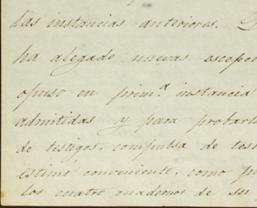 las instancias anteriores.
ha alegado nuevas escepci
opuso en prim.ª instancia
admitidas y para probarl
de testigos, compulsa de tes
estimó conveniente, como pu
los cuatro cuadernos de su